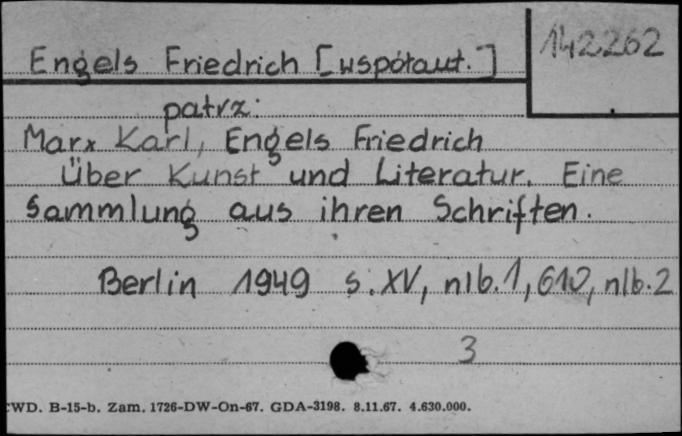 Engels Friedrich [współaut.]
142262
patrz:
Marx Karl, Engels Friedrich
Über Kunst und Literatur. Eine
Sammlung aus ihren Schriften.
Berlin 1949 s. XV, nlb. 1, 610, nlb. 2
3
CWD. B-15-b. Zam. 1726-DW-On-67. GDA-3198. 8.11.67. 4.630.000.